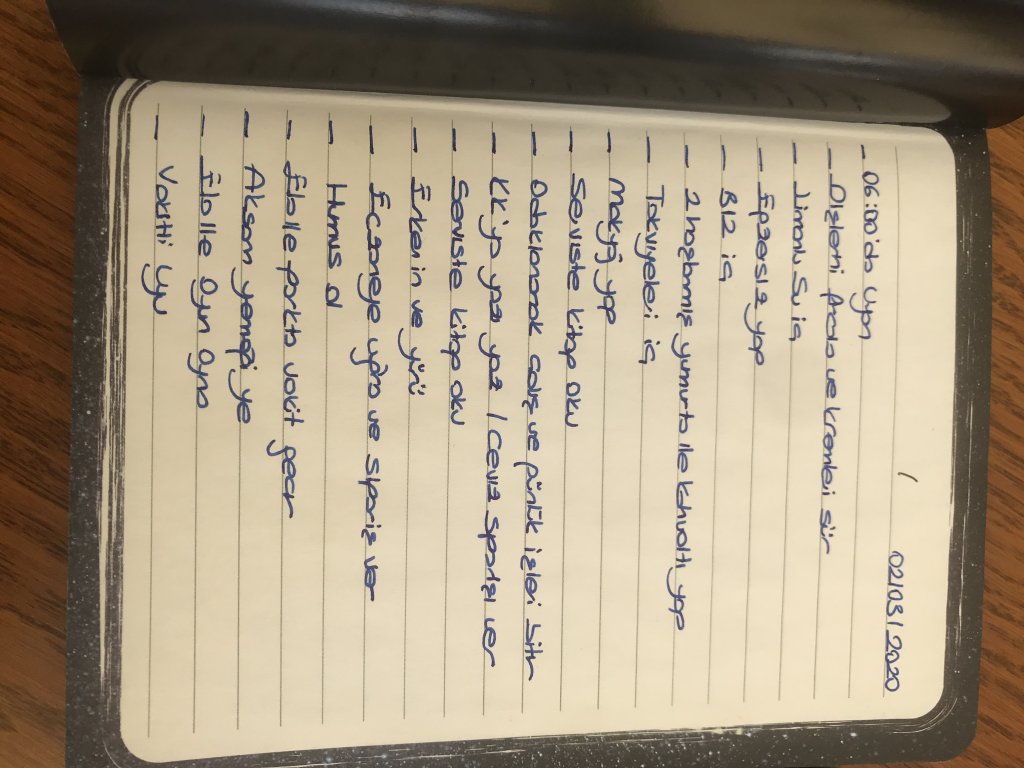 02/03/2020
- 06:00'da uyan
- Dişlerini fırçala ve kremleri sür
- Limonlu su iç
- Egzersiz yap
- B12 iç
- 2 haşlanmış yumurta ile kahvaltı yap
- Takviyeleri iç
- Makyaj yap
- Serviste kitap oku
- Odaklanarak çalış ve günlük işleri bitir
- KK'ya yazı yaz / Ceviz siparişi ver
- Serviste kitap oku
- Erken in ve yürü
- Eczaneye uğra ve sipariş ver
- Humus al
- Elalle parkta vakit geçir
- Akşam yemeği ye
- Elalle Oyun Oyna
- Vakitli Uyu